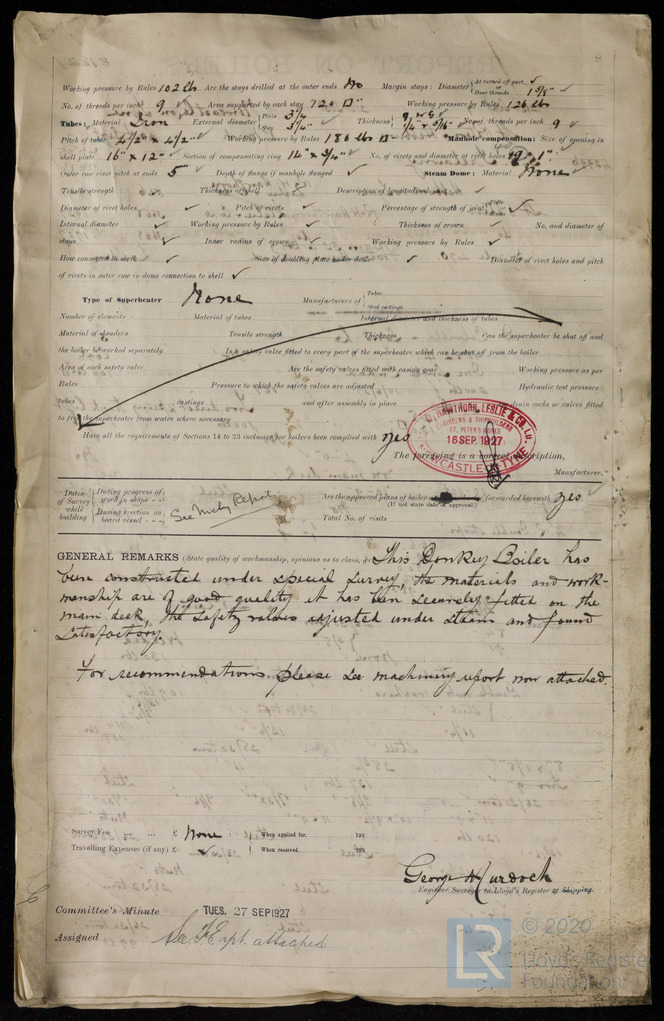 Working pressure by Rules 102 lb Are the stays drilled at the outer ends No Margin stays: Diameter { At turned off part, ✓ or Over threads 1 5/8" ✓
No. of threads per inch 9 ✓ Area supported by each stay 120 □" Working pressure by Rules 126 lb
Tubes: Material Iron External diameter { Plain 3 1/4 Stay 3 1/4" ✓ Thickness { 9 W G 1/4" & 5/16" No. of threads per inch 9 ✓
Pitch of tubes 4 1/2" x 4 1/2" Working pressure by Rules 180 lb Manhole compensation: Size of opening in
shell plate 16" x 12" Section of compensating ring 14" x 3/4" No. of rivets and diameter of rivet holes 1" ✓
Outer row rivet pitch at ends 5" Depth of flange if manhole flanged ✓ Steam Dome: Material None
Tensile strength Thickness of shell Description of longitudinal joint
Diameter of rivet holes ✓ Pitch of rivets ✓ Percentage of strength of joint { Plate Rivets ✓
Internal diameter ✓ Working pressure by Rules ✓ Thickness of crown ✓ No. and diameter of
stays ✓ Inner radius of crown ✓ Working pressure by Rules ✓
How connected to shell ✓ Size of doubling plate under dome ✓ Diameter of rivet holes and pitch
of rivets in outer row in dome connection to shell ✓
Type of Superheater None Manufacturers of { Tubes Steel castings
Number of elements Material of tubes Internal diameter and thickness of tubes
Material of headers Tensile strength Thickness Can the superheater be shut off and
the boiler be worked separately Is a safety valve fitted to every part of the superheater which can be shut off from the boiler
Area of each safety valve Are the safety valves fitted with easing gear Working pressure as per
Rules Pressure to which the safety valves are adjusted Hydraulic test pressure:
tubes castings and after assembly in place drain cocks or valves fitted
to free the superheater from water where necessary
Have all the requirements of Sections 14 to 23 inclusive for boilers been complied with yes
R. & W. HAWTHORN, LESLIE & CO. LTD.
ENGINEERS & SHIPBUILDERS
ST. PETER'S WORKS
16 SEP. 1927
NEWCASTLE - TYNE
The foregoing is a correct description,
Manufacturer.
Dates of Survey while building { During progress of work in shops - - During erection on board vessel - - - } See Mchy Report
Are the approved plans of boiler forwarded herewith yes
(If not state date of approval.)
Total No. of visits
GENERAL REMARKS (State quality of workmanship, opinions as to class, &c. This Donkey Boiler has
been constructed under special survey, the materials and work-
manship are of good quality it has been securely fitted on the
main deck, the safety valves adjusted under steam and found
satisfactory.
For recommendations please see machinery report now attached.
Survey Fee ... ... £ None : : } When applied for, 192
Travelling Expenses (if any) £ ✓ : : } When received, 192
George Murdoch
Engineer Surveyor to Lloyd's Register of Shipping.
Committee's Minute TUES. 27 SEP 1927
Assigned See rpt. attached
LR
© 2020
Lloyd's Register
Foundation